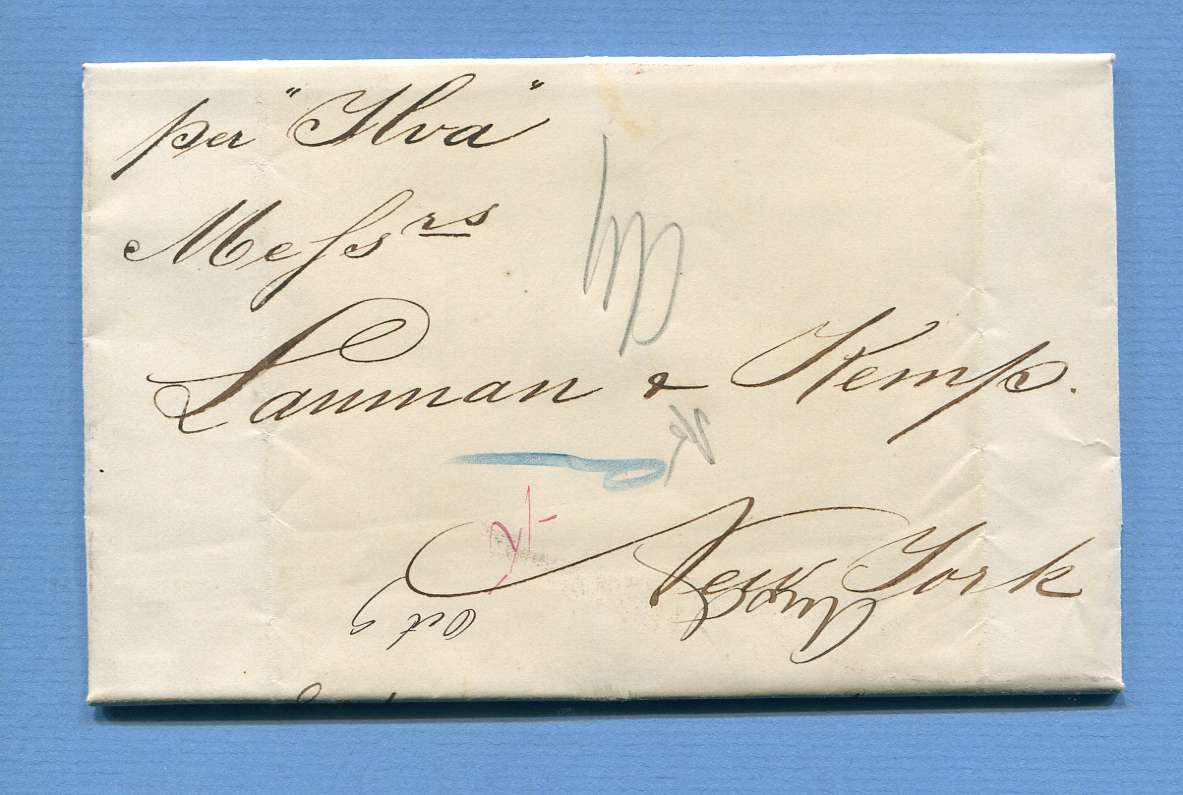 per "Ilva"
Messrs
Lanman & Kemp.
New York
Oct 5